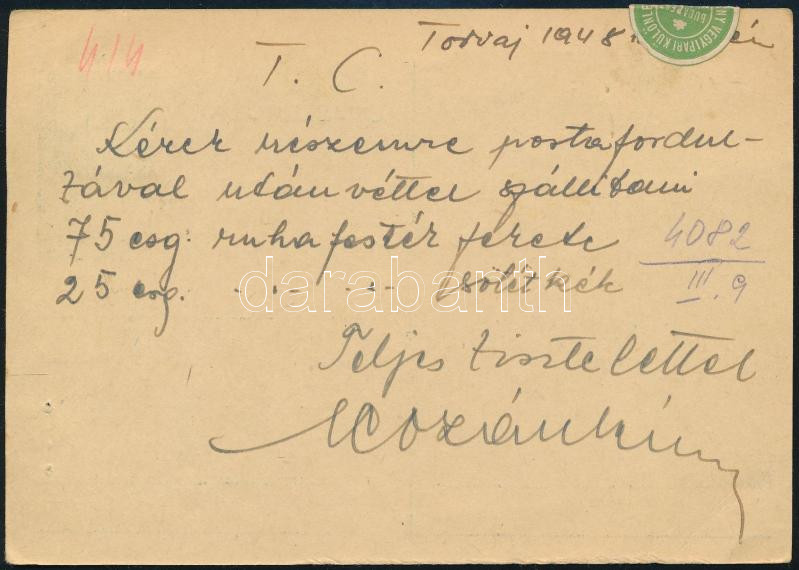 414
Torvaj 1948
T. C.
Kérek részemre postafordul-
tával utánvéttel szállitani
75 csg. ruhafesték fekete
25 csg. -·- -·- sötétkék
4082
III. 9
Teljes tisztelettel
VEGYIPARI KÜLÖNLE
BUDAPEST
darabanth